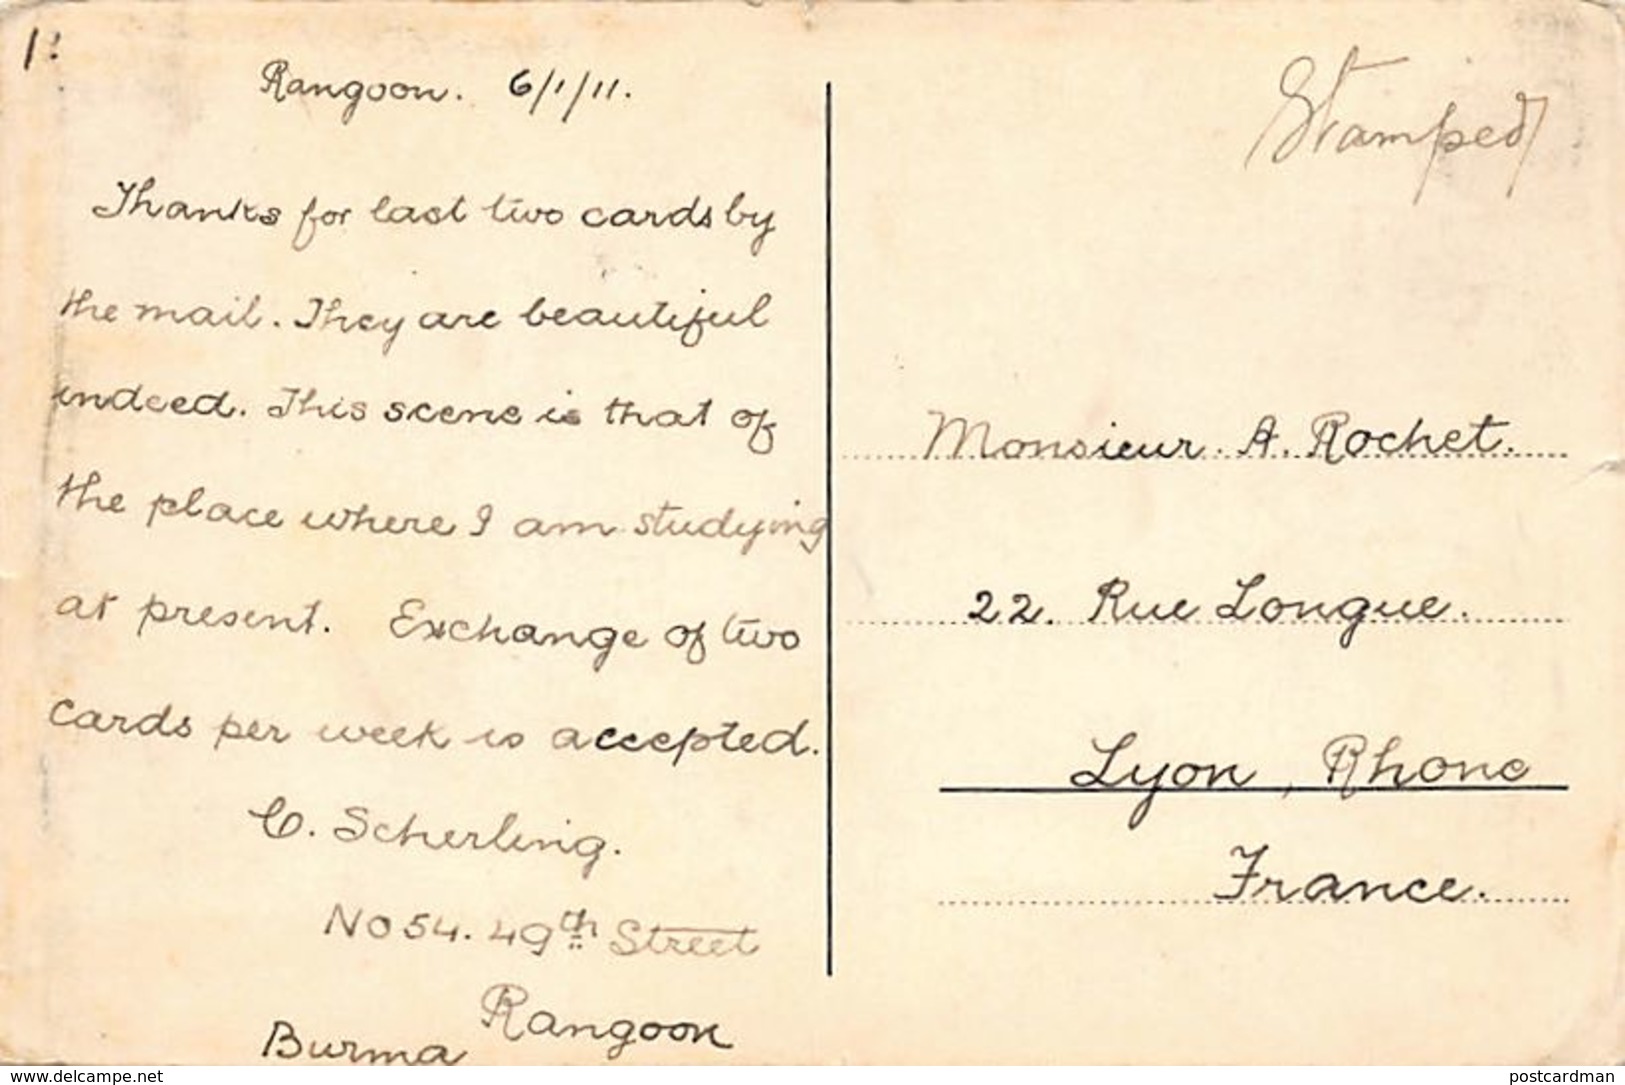 Rangoon. 6/1/11.
Thanks for last two cards by
the mail. They are beautiful
indeed. This scene is that of
the place where I am studying
at present. Exchange of two
cards per week is accepted.
C. Scherling.
No 54. 49th Street
Rangoon
Burma
Stamped
Monsieur. A. Rochet.
22. Rue Longue.
Lyon, Rhone
France.
www.delcampe.net
postcardman